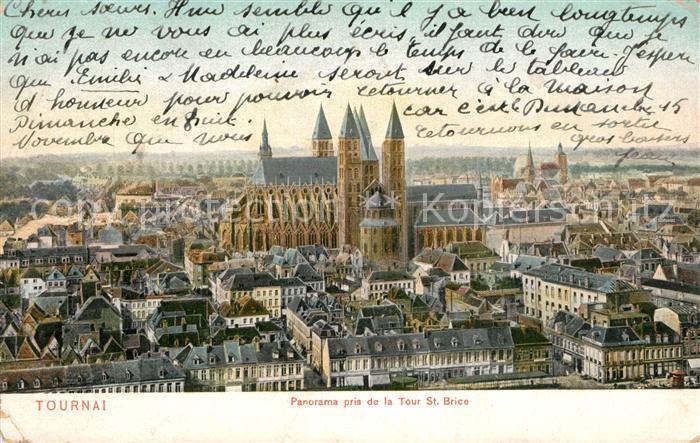 Chers sœurs. Il me semble qu'il y a bien longtemps
que je ne vous ai plus écris, il faut dire que je
n'ai pas encore eu beaucoup le temps de le faire. J'espère
que Emilie & Madeleine seront sur le tableau
d'honneur pour pouvoir retourner à la maison
Dimanche en huit. car c'est Dimanche 15
Novembre que nous retournons en sortie
gros baisers
Jean
TOURNAI
Panorama pris de la Tour St. Brice